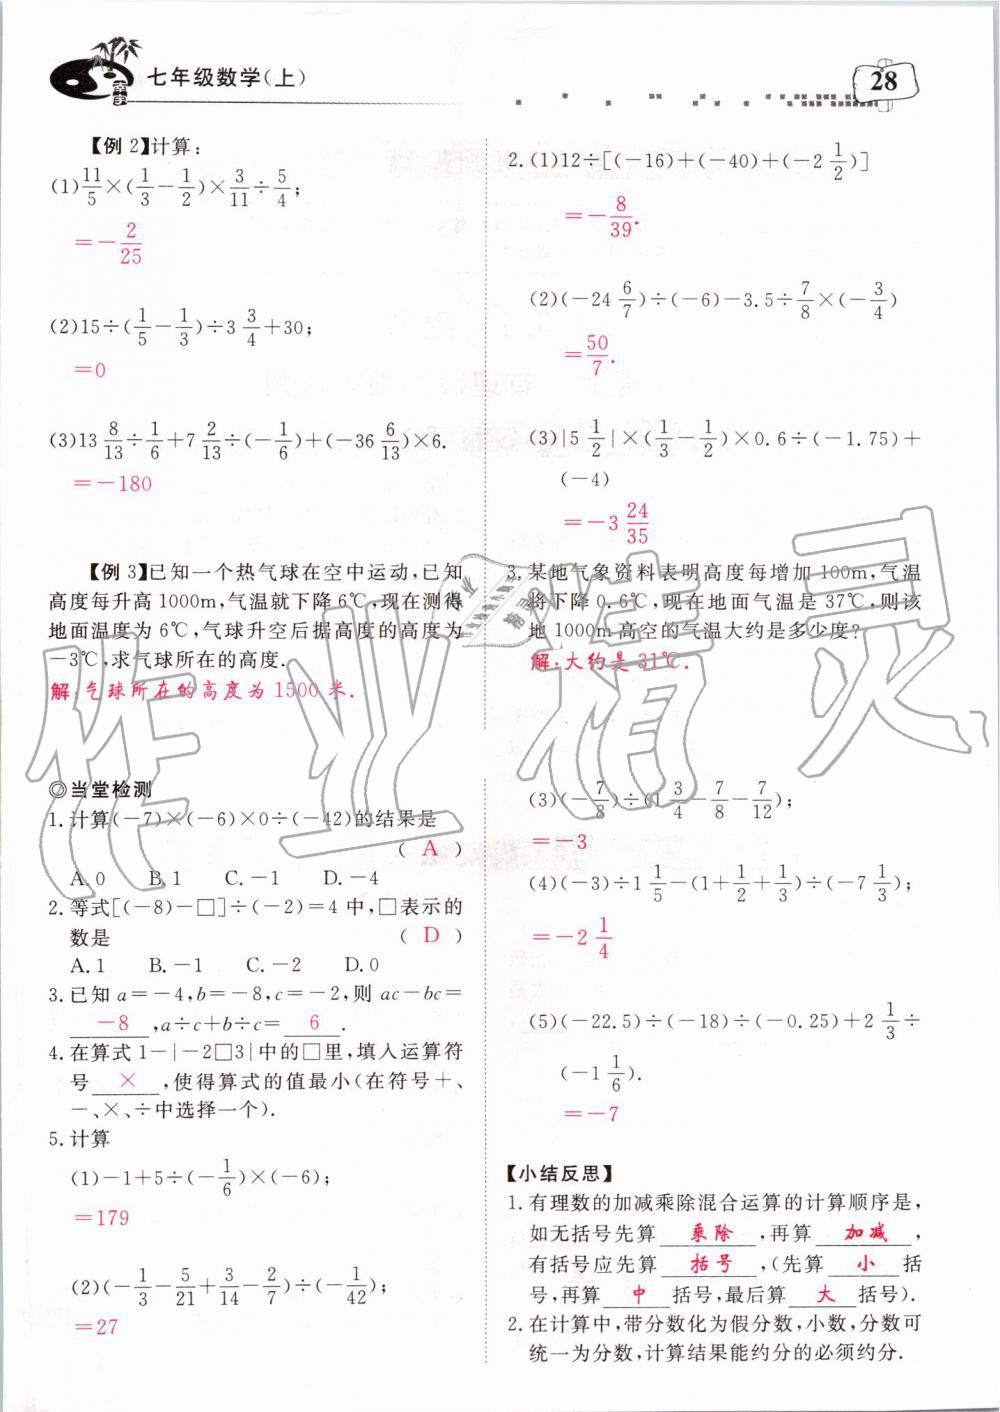 七年级数学(上)
28
【例 2】计算:
(1)11/5×(1/3-1/2)×3/11÷5/4;
=-2/25
(2)15÷(1/5-1/3)÷3 3/4+30;
=0
(3)13 8/13÷1/6+7 2/13÷(-1/6)+(-36 6/13)×6.
=-180
【例 3】已知一个热气球在空中运动,已知
高度每升高1000m,气温就下降6℃,现在测得
地面温度为6℃,气球升空后据高度的高度为
-3℃,求气球所在的高度.
解:气球所在的高度为1500米.
◎当堂检测
1.计算(-7)×(-6)×0÷(-42)的结果是
( A )
A.0 B.1 C.-1 D.-4
2.等式[(-8)-□]÷(-2)=4中,□表示的
数是 ( D )
A.1 B.-1 C.-2 D.0
3.已知a=-4,b=-8,c=-2,则ac-bc=
-8,a÷c+b÷c=6.
4.在算式1-|-2□3|中的□里,填入运算符
号×,使得算式的值最小(在符号+、
-、×、÷中选择一个).
5.计算
(1)-1+5÷(-1/6)×(-6);
=179
(2)(-1/3-5/21+3/14-2/7)÷(-1/42);
=27
2.(1)12÷[(-16)+(-40)+(-2 1/2)]
=-8/39.
(2)(-24 6/7)÷(-6)-3.5÷7/8×(-3/4)
=50/7.
(3)|5 1/2|×(1/3-1/2)×0.6÷(-1.75)+
(-4)
=-3 24/35
3.某地气象资料表明高度每增加100m,气温
将下降0.6℃,现在地面气温是37℃,则该
地1000m高空的气温大约是多少度?
解:大约是31℃.
(3)(-7/8)÷(1 3/4-7/8-7/12);
=-3
(4)(-3)÷1 1/5-(1+1/2+1/3)÷(-7 1/3);
=-2 1/4
(5)(-22.5)÷(-18)÷(-0.25)+2 1/3÷
(-1 1/6).
=-7
【小结反思】
1.有理数的加减乘除混合运算的计算顺序是,
如无括号先算乘除,再算加减,
有括号应先算括号,(先算小括
号,再算中括号,最后算大括号).
2.在计算中,带分数化为假分数,小数,分数可
统一为分数,计算结果能约分的必须约分.
作业精灵